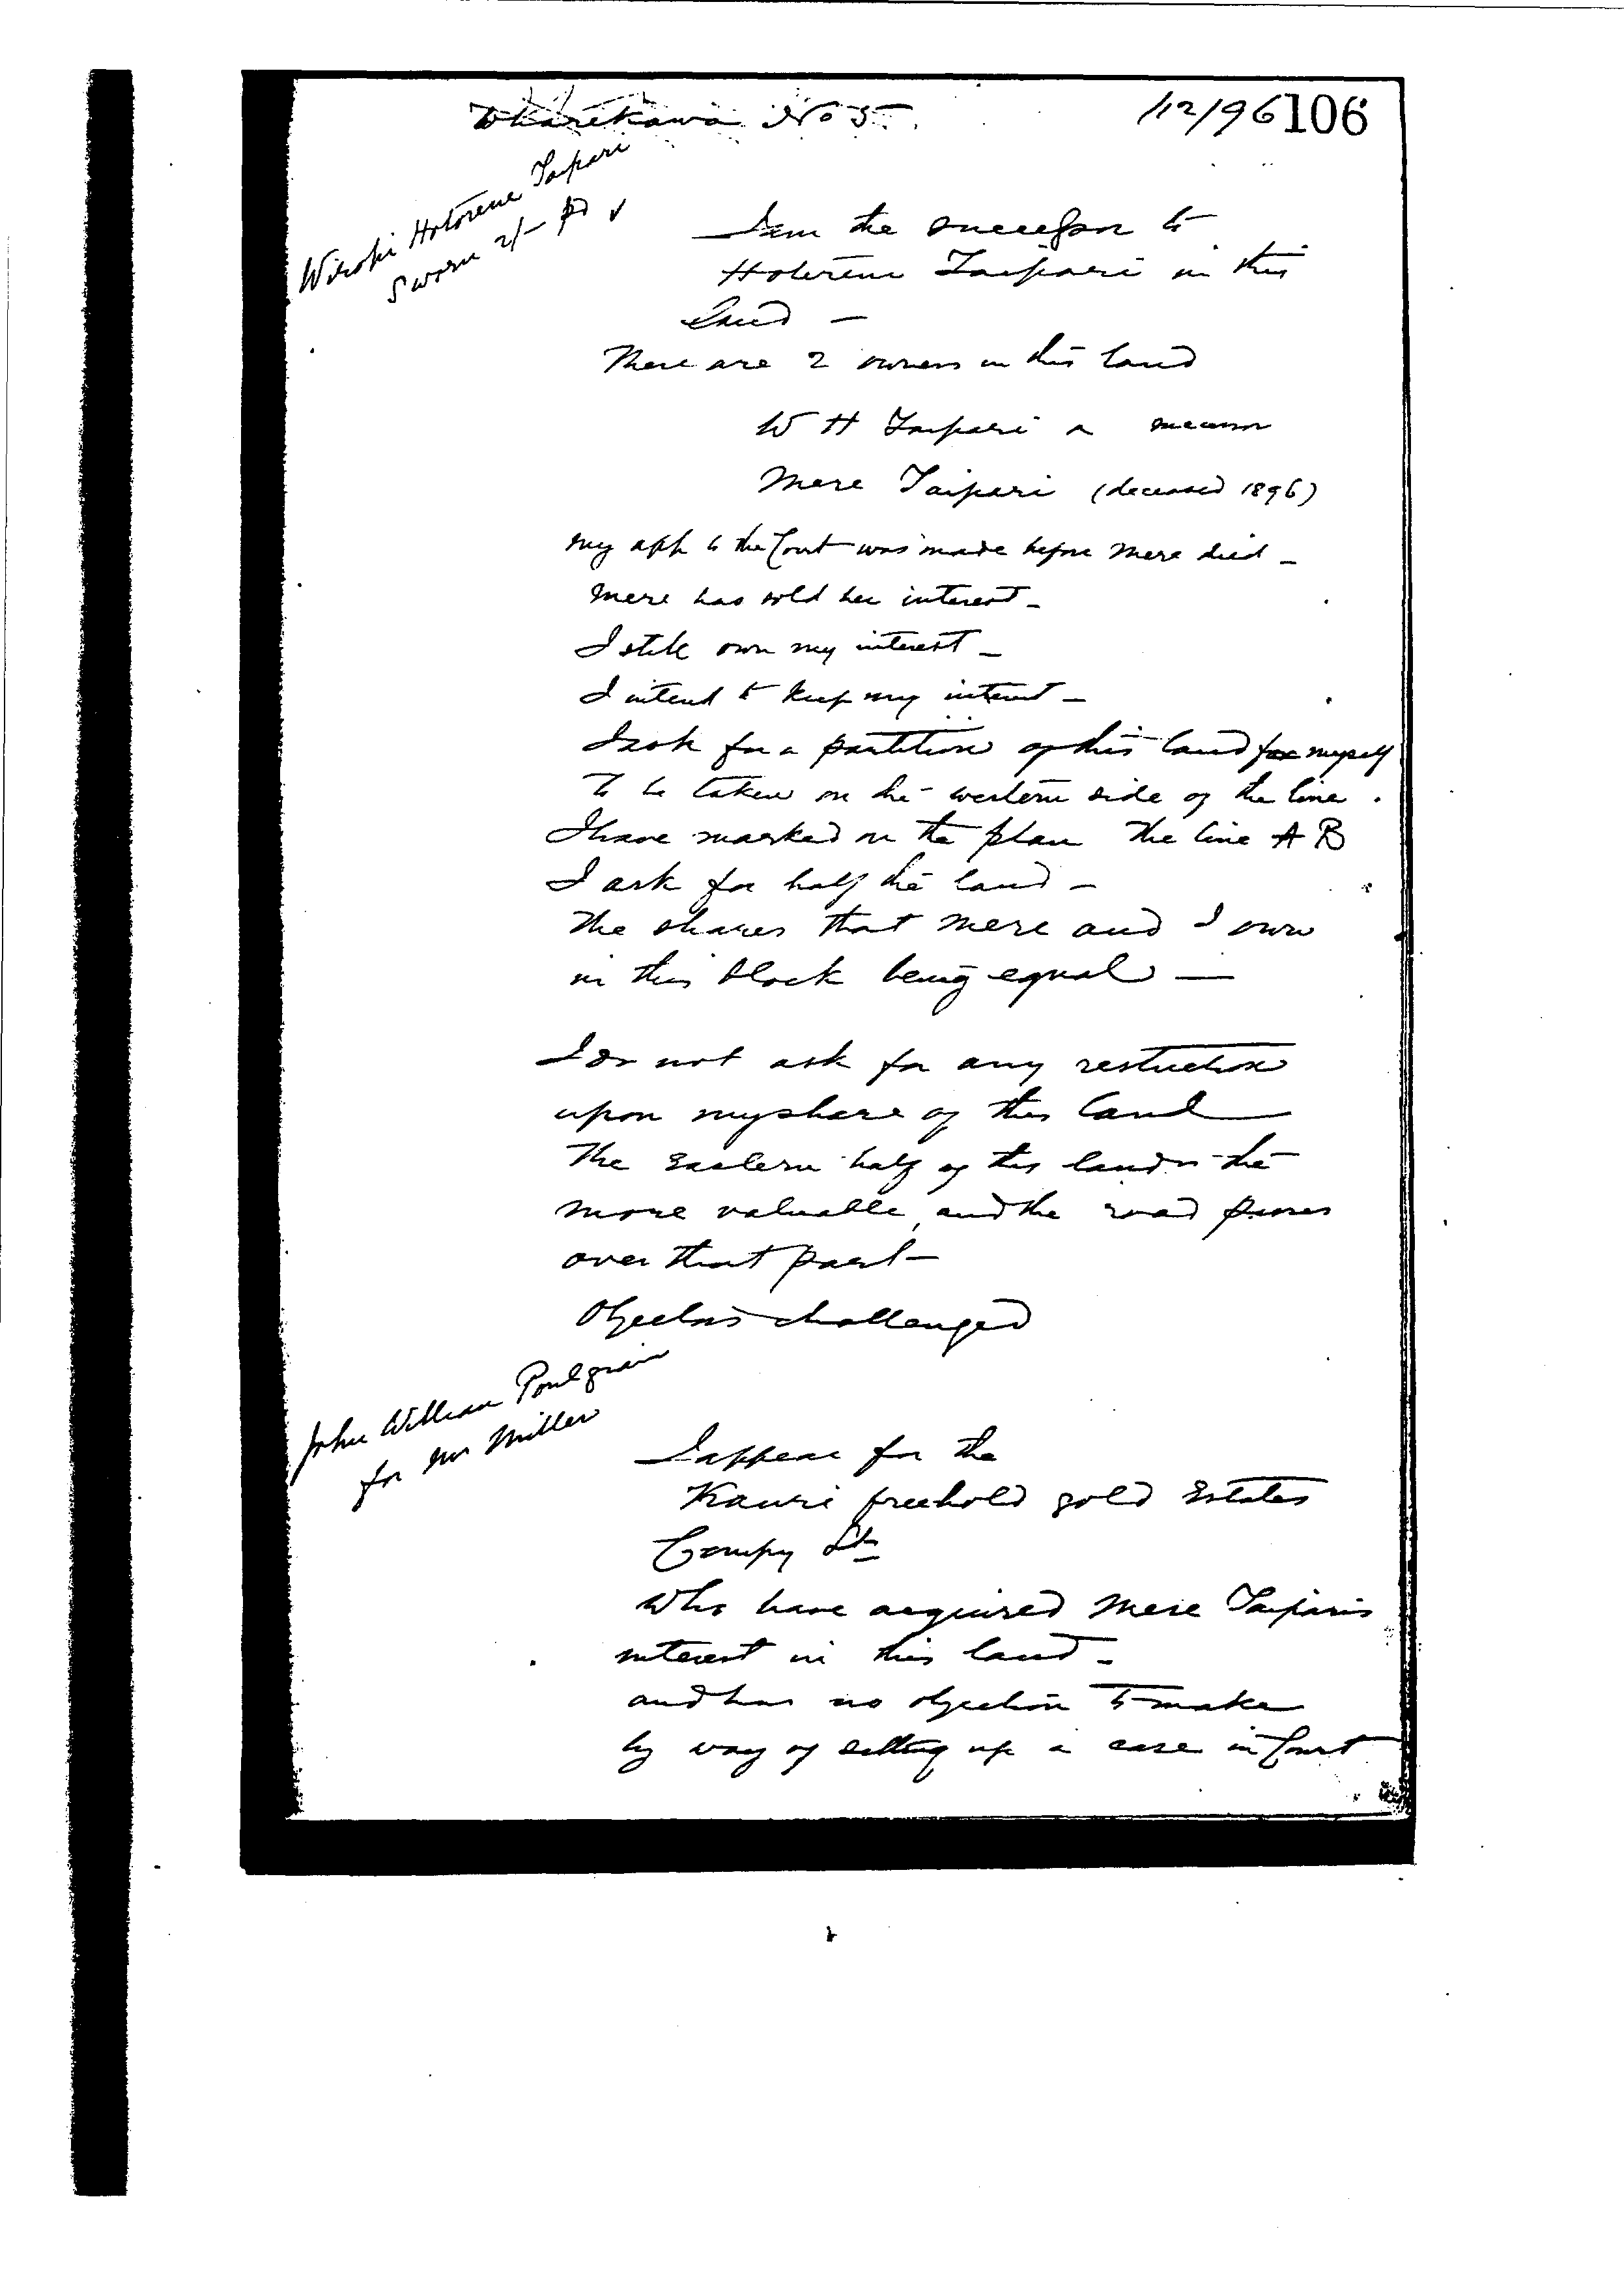 Wharekawa No 5.
/12/96 106
Wirope Hotorene Taipari
Sworn 2/- pd ✓
I am the successor to
Hoterene Taipari in this
land —
There are 2 owners in this land
W H Taipari a
Mere Taipari (deceased 1896)
my app to the Court was made before Mere died —
Mere has sold her interest —
I still own my interest —
I intend to keep my interest —
I ask for a partition of this land for myself
To be taken on the western side of the line .
I have marked on the plan The line A B
I ask for half the land —
The shares that Mere and I own
in this block being equal —
I do not ask for any restriction
upon my share of this land
The Eastern half of this land is the
more valuable, and the road passes
over that part —
Objectors challenged
John William Poulgrain
for Mr Miller
I appear for the
Kauri freehold gold Estates
Compy Ltd
Who have acquired Mere Taiparis
interest in this land —
and has no objection to make
by way of setting up a case in Court